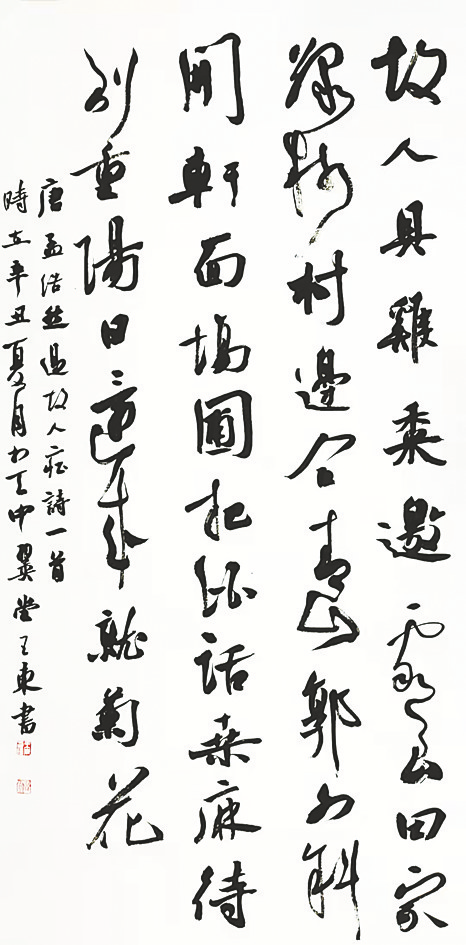 故人具雞黍邀我至田家
綠樹村邊合青山郭外斜
開軒面場圃把酒話桑麻待
到重陽日還來就菊花
唐孟浩然過故人莊詩一首
時在辛丑夏月於中翼堂王東書